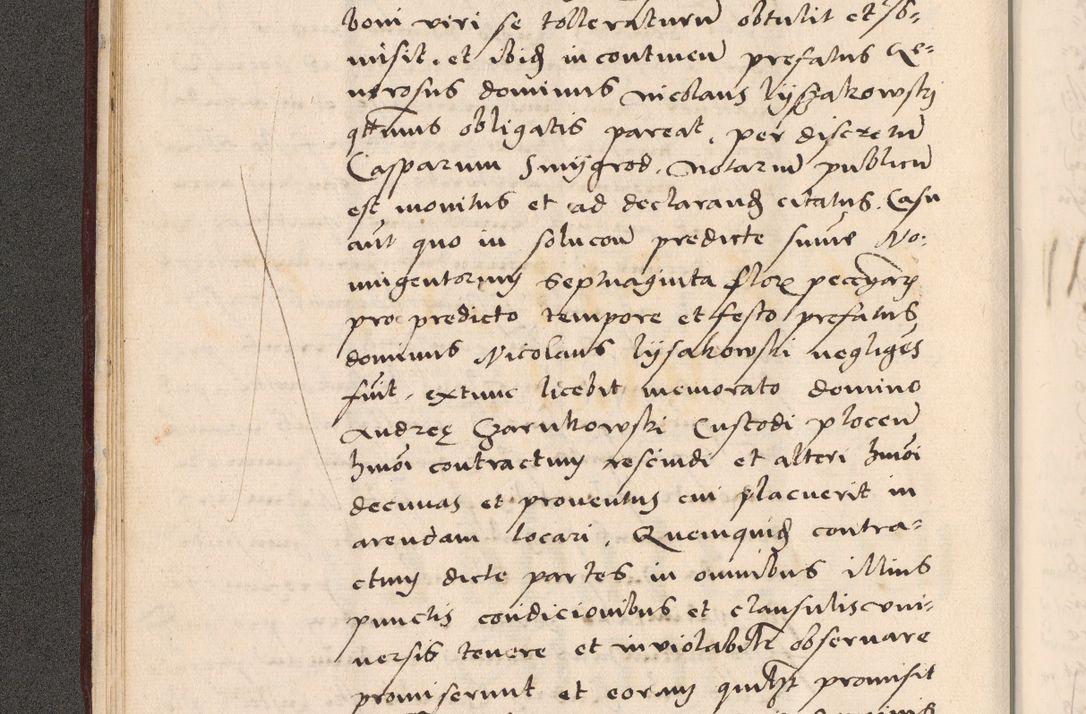 boni viri se tolleraturũ obtulit et ꝓ-
misit. et ibidẽ in continen prefatus Ge-
nerosus dominus Nicolaus lyszakowskj
q̃tenus obligatis pareat, per discretũ
Casparum Smygrod. Notariũ publicũ
est monitus et ad declarandũ citatus. Casu
aũt quo in soluco͠e predicte summe No-
ningentorum septuaginta flor peccuniarũ
pro predicto tempore et festo prefatus
dominus Nicolaus lysakowski negligẽs
fũit, extunc licebit memorato domino
Andreę Czarnkowski Custodi plocen
hm̃oi contractum rescindi et alteri hm̃oi
decimas et prouentus cui placuerit in
arendam locari. Quemquidẽ contra-
ctum dicte partes in omnibus illius
punctis condicionibus et clausulis vni-
uersis tenere et inviolabil̃r obseruare
promiserunt et eorum quil̃t promisit